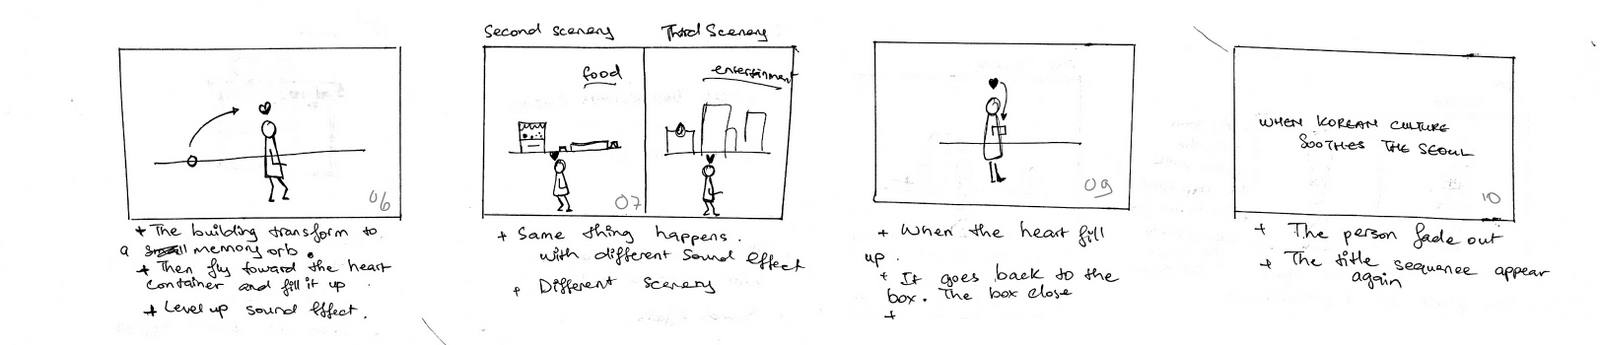 06
+ The building transform to
a small memory orb.
+ Then fly toward the heart
container and fill it up.
+ Level up sound effect.
Second scenery
Third Scenery
food
entertainment
07
+ Same thing happens.
with different sound effect
+ Different scenery
09
+ When the heart fill
up.
+ It goes back to the
box. The box close
+
WHEN KOREAN CULTURE
SOOTHES THE SEOUL
10
+ The person fade out
+ The title sequence appear
again